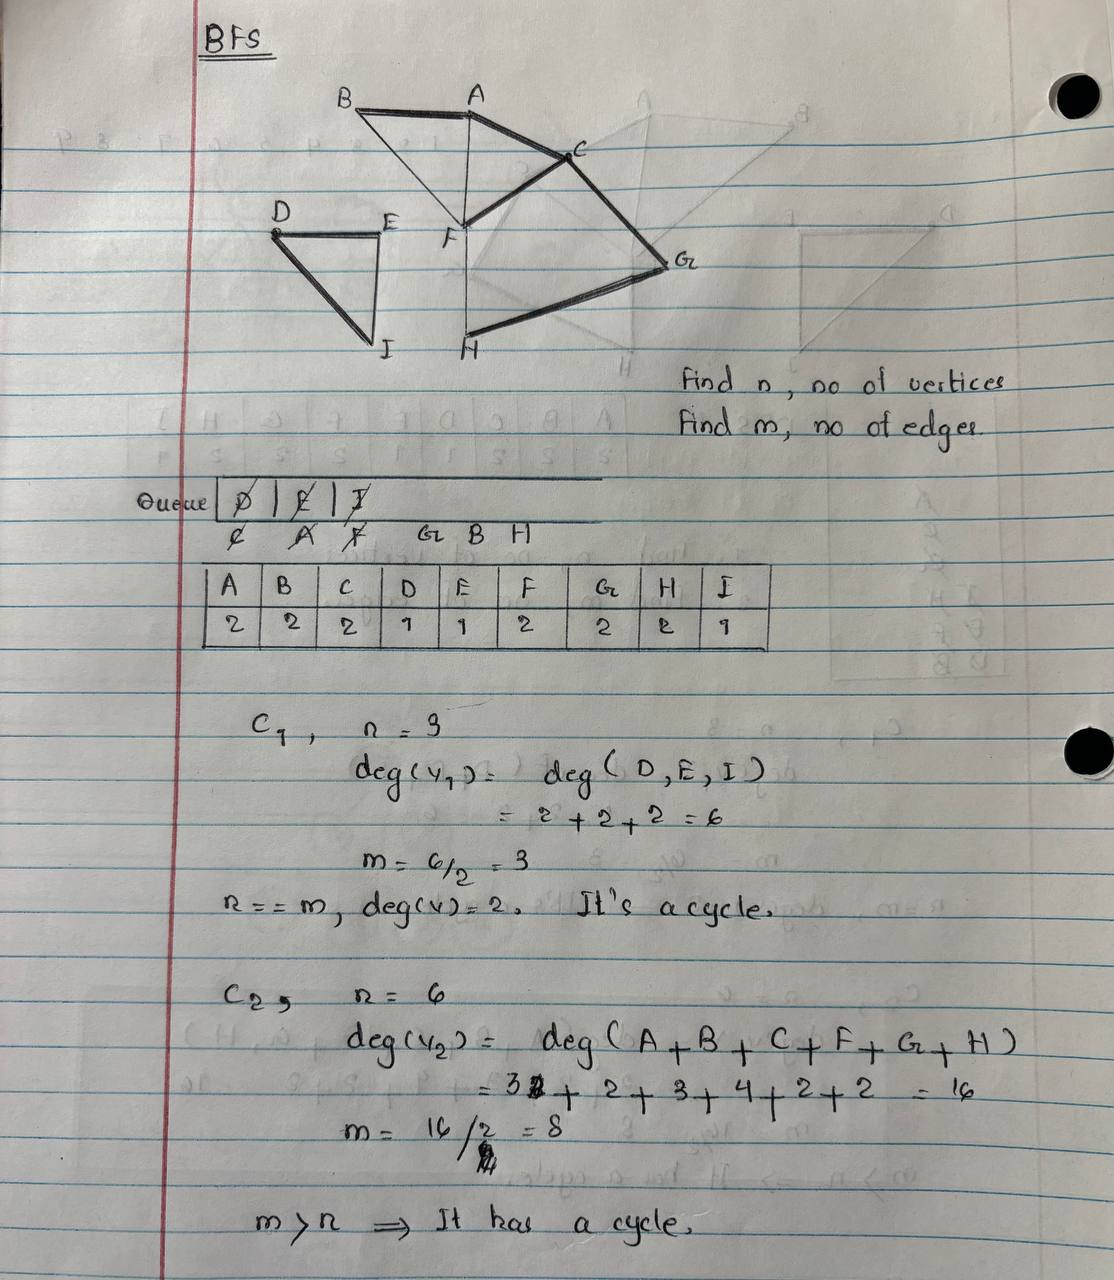 BFS
B A
C
D E F
G
I H
Find n, no of vertices
Find m, no of edges
Queue D | E | I
C A F G B H
A B C D E F G H I
2 2 2 1 1 2 2 2 1
C1, n = 3
deg(V1) = deg(D,E,I)
= 2+2+2 = 6
m = 6/2 = 3
n == m, deg(v)=2. It's a cycle.
C2, n = 6
deg(V2) = deg(A+B+C+F+G+H)
= 3 + 2 + 3 + 4 + 2 + 2 = 16
m = 16/2 = 8
m > n ⇒ It has a cycle.